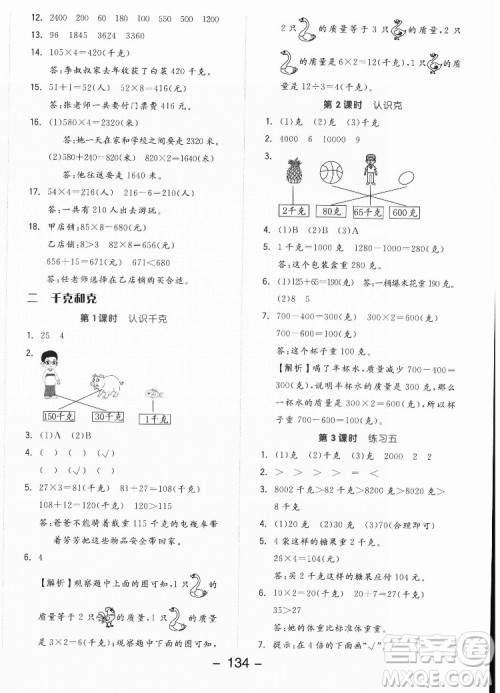 12. 2400 240 360 620 550 1200
13. 96 90 68 84 288 2320
14. 105×4=420(千克)
答:李叔叔家去年收获了白菜 420 千克。
15. 51+1=52(人) 52×8=416(元)
答:张老师一共要付门票费 416 元。
16. (1)580×4=2320(米)
答:她一天在家和学校之间要走 2320 米。
(2)580+240=820(米) 820×2=1640(米)
答:他往返要走 1640 米。
17. 54×4=216(人) 216-6=210(人)
答:一共有 210 人出去游玩。
18. 甲店铺:85×8=680(元)
乙店铺:8>3 82×8=656(元)
656+15=671(元) 671<680
答:任老师在乙店铺购买合过。
二 千克和克
第 1 课时 认识千克
1. 25 4
2.
150千克 30千克 1千克
3. (1)A (2)B
4. ( ) ( ) (√)
( ) (√) ( )
5. 27×3=81(千克) 81+27=108(千克)
108+12=120(千克) 120>115
答:爸爸不能骑着载重 115 千克的电瓶车去
帮芳芳把这些物品全部载回家。
6. 4
【解析】观察题中上面的图可知,1 只
的质量等于 2 只 的质量,1 只 的质量是
3×2=6(千克)。观察题中下面的图可知,
2 只 的质量等于 3 只 的质量,2 只
的质量是 6×2=12(千克),1 只 的质
量是 12÷3=4(千克)。
第 2 课时 认识克
1. (1)克 (2)克 千克
2. 4000 6 10000 9
3.
2千克 80克 65千克 600克
4. (1)B (2)B (3)A
5. 1 千克=1000 克 1280-1000=280(克)
答:剩下的苹果重 280 克。
6. (1)125+65=190(克) 答:一个桶爆米花重 190 克。
(2)8 5
7. 700-400=300(克) 400-300=100(克)
答:这个杯子重 100 克。
【解析】喝了半杯水,质量减少 700-
400=300(克),说明半杯水的质量是 300 克,那么
一个杯子和半杯水的质量是 400 克,所以这
个杯子重 400-300=100(克)。
第 3 课时 练习五
1. (1)克 (2)千克 克 2000 2 克
2. > > > = > <
3. 8002 千克>82 千克>8200 克>820 克
>82 克
4. (1)20克 (2)70克 (答案合理即可)
5. 4 家这样的糖果不重 1 千克
26×4=104(元)
答:买 2 千克这样的糖果需要 104 元。
6. 31+4=35(千克) 20+7=27(千克)
35>27
答:她的体重比标准体重重。
7. 提示:在 4 倍的下面画“√”。
- 134 -
答案圈